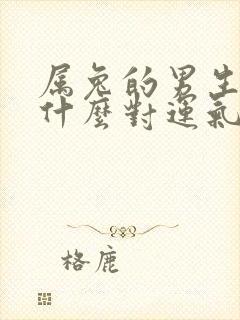 属兔的男生
什麼對運氣
格鹿